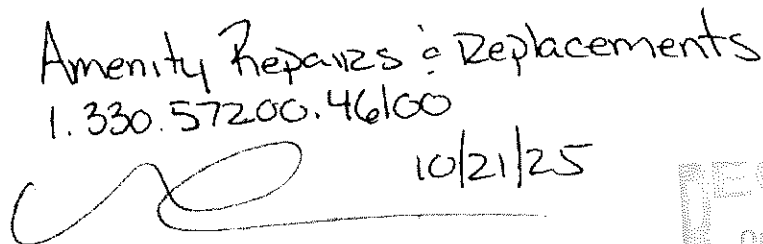 Amenity Repairs & Replacements
1.330.57200.46100
10/21/25